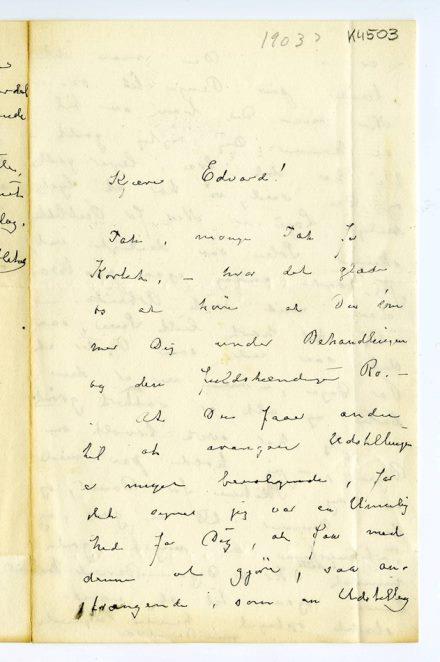 1903?
K4503
Kjære Edvard!
Tak, mange Tak for
Kortet, – hvor det glæder
os at høre at Du kom
mer Dig under Behandlingen
og den fuldstændige Ro. –
At Du faaer andre
til at arrangere Udstillingen
er meget beroligende, for
det synes jeg var en Umulig
hed for Dig, at faa med
denne at gjøre, saa an-
strængende, som en Udstilling